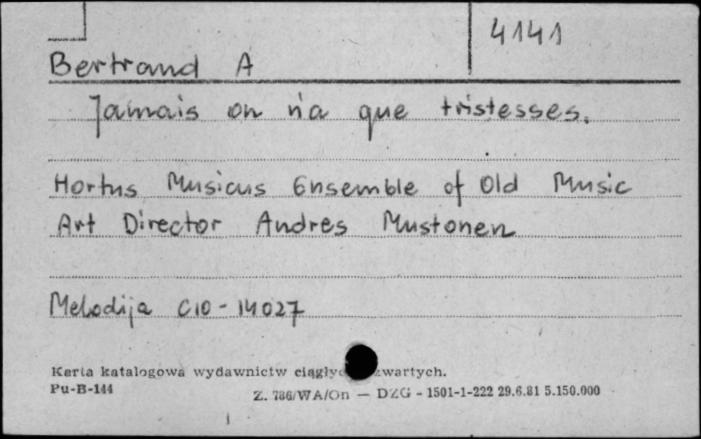 4141
Bertrand A
Jamais on n'a que tristesses.
Hortus Musicus Ensemble of Old Music
Art Director Andres Mustonen
Melodija C10-14027
Karta katalogowa wydawnictw zwartych.
Pu-B-144
Z. 786/WA/On — DZG - 1501-1-222 29.6.81 5.150.000